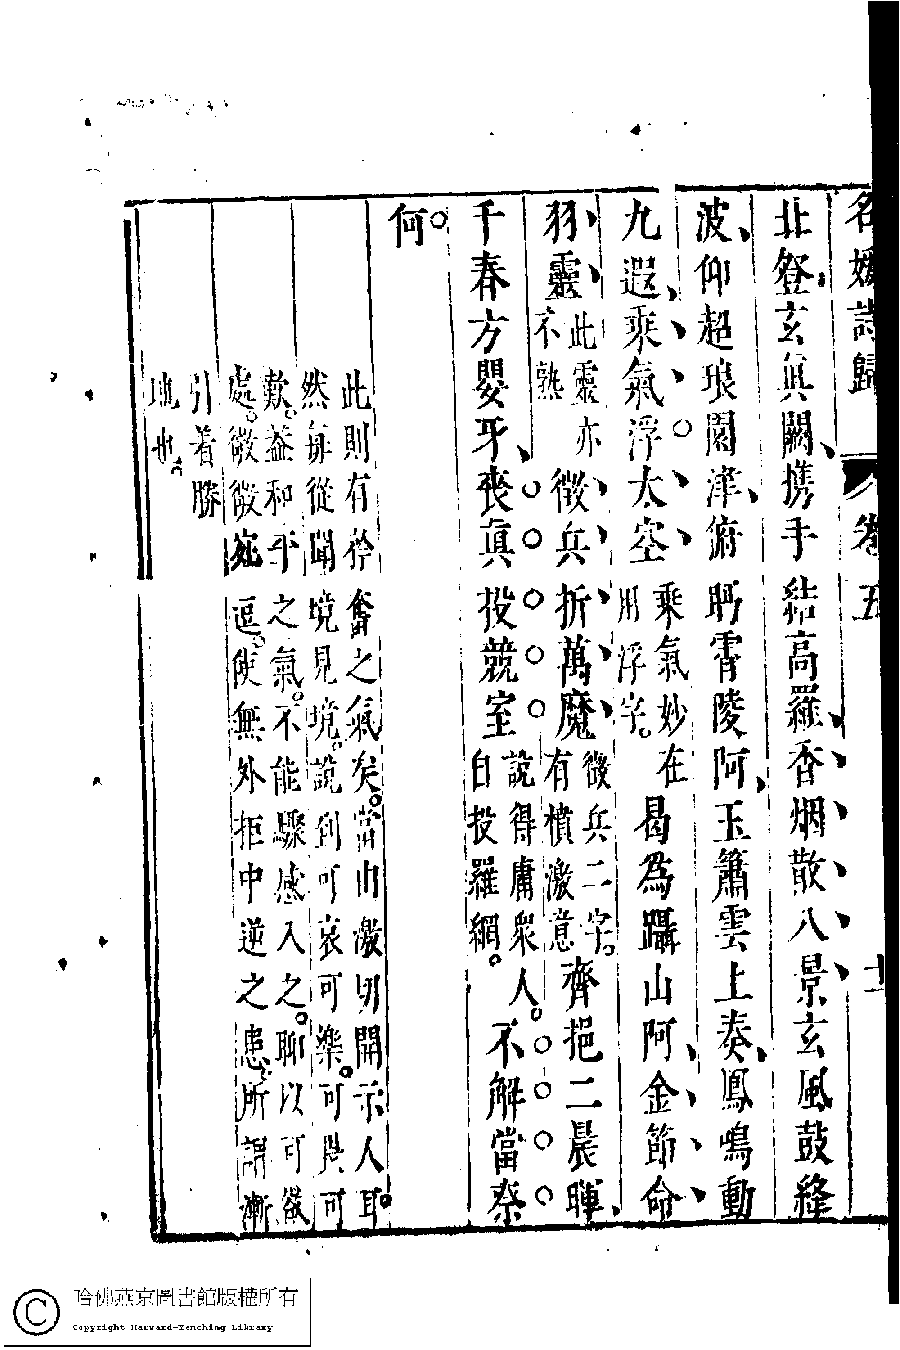 名媛詩歸 卷五
北登玄真闕、携手結高羅、香烟散八景、玄風鼓絳
波、仰超琅園津、俯眄霄陵阿、玉簫雲上奏、鳳鳴動
九遐、乘氣浮太空、乘氣妙在用浮字。曷為躡山阿、金節命
羽靈、此靈亦不熟徵兵折萬魔、徵兵二字。有憤激意齊挹二晨暉、
千春方嬰牙、喪真投競室說得庸衆人。自投羅網。不解當柰
何。
此則有矜奮之氣矣。當由激切開示人耳。
然毎從聞境見境。說到可哀可樂。可與可
歎。益和平之氣。不能驟感入之。聊以可欲
處。微微宛逗。使無外拒中逆之患。所謂漸
引着勝
地也。
哈佛燕京圖書館版權所有
Copyright Harvard-Yenching Library